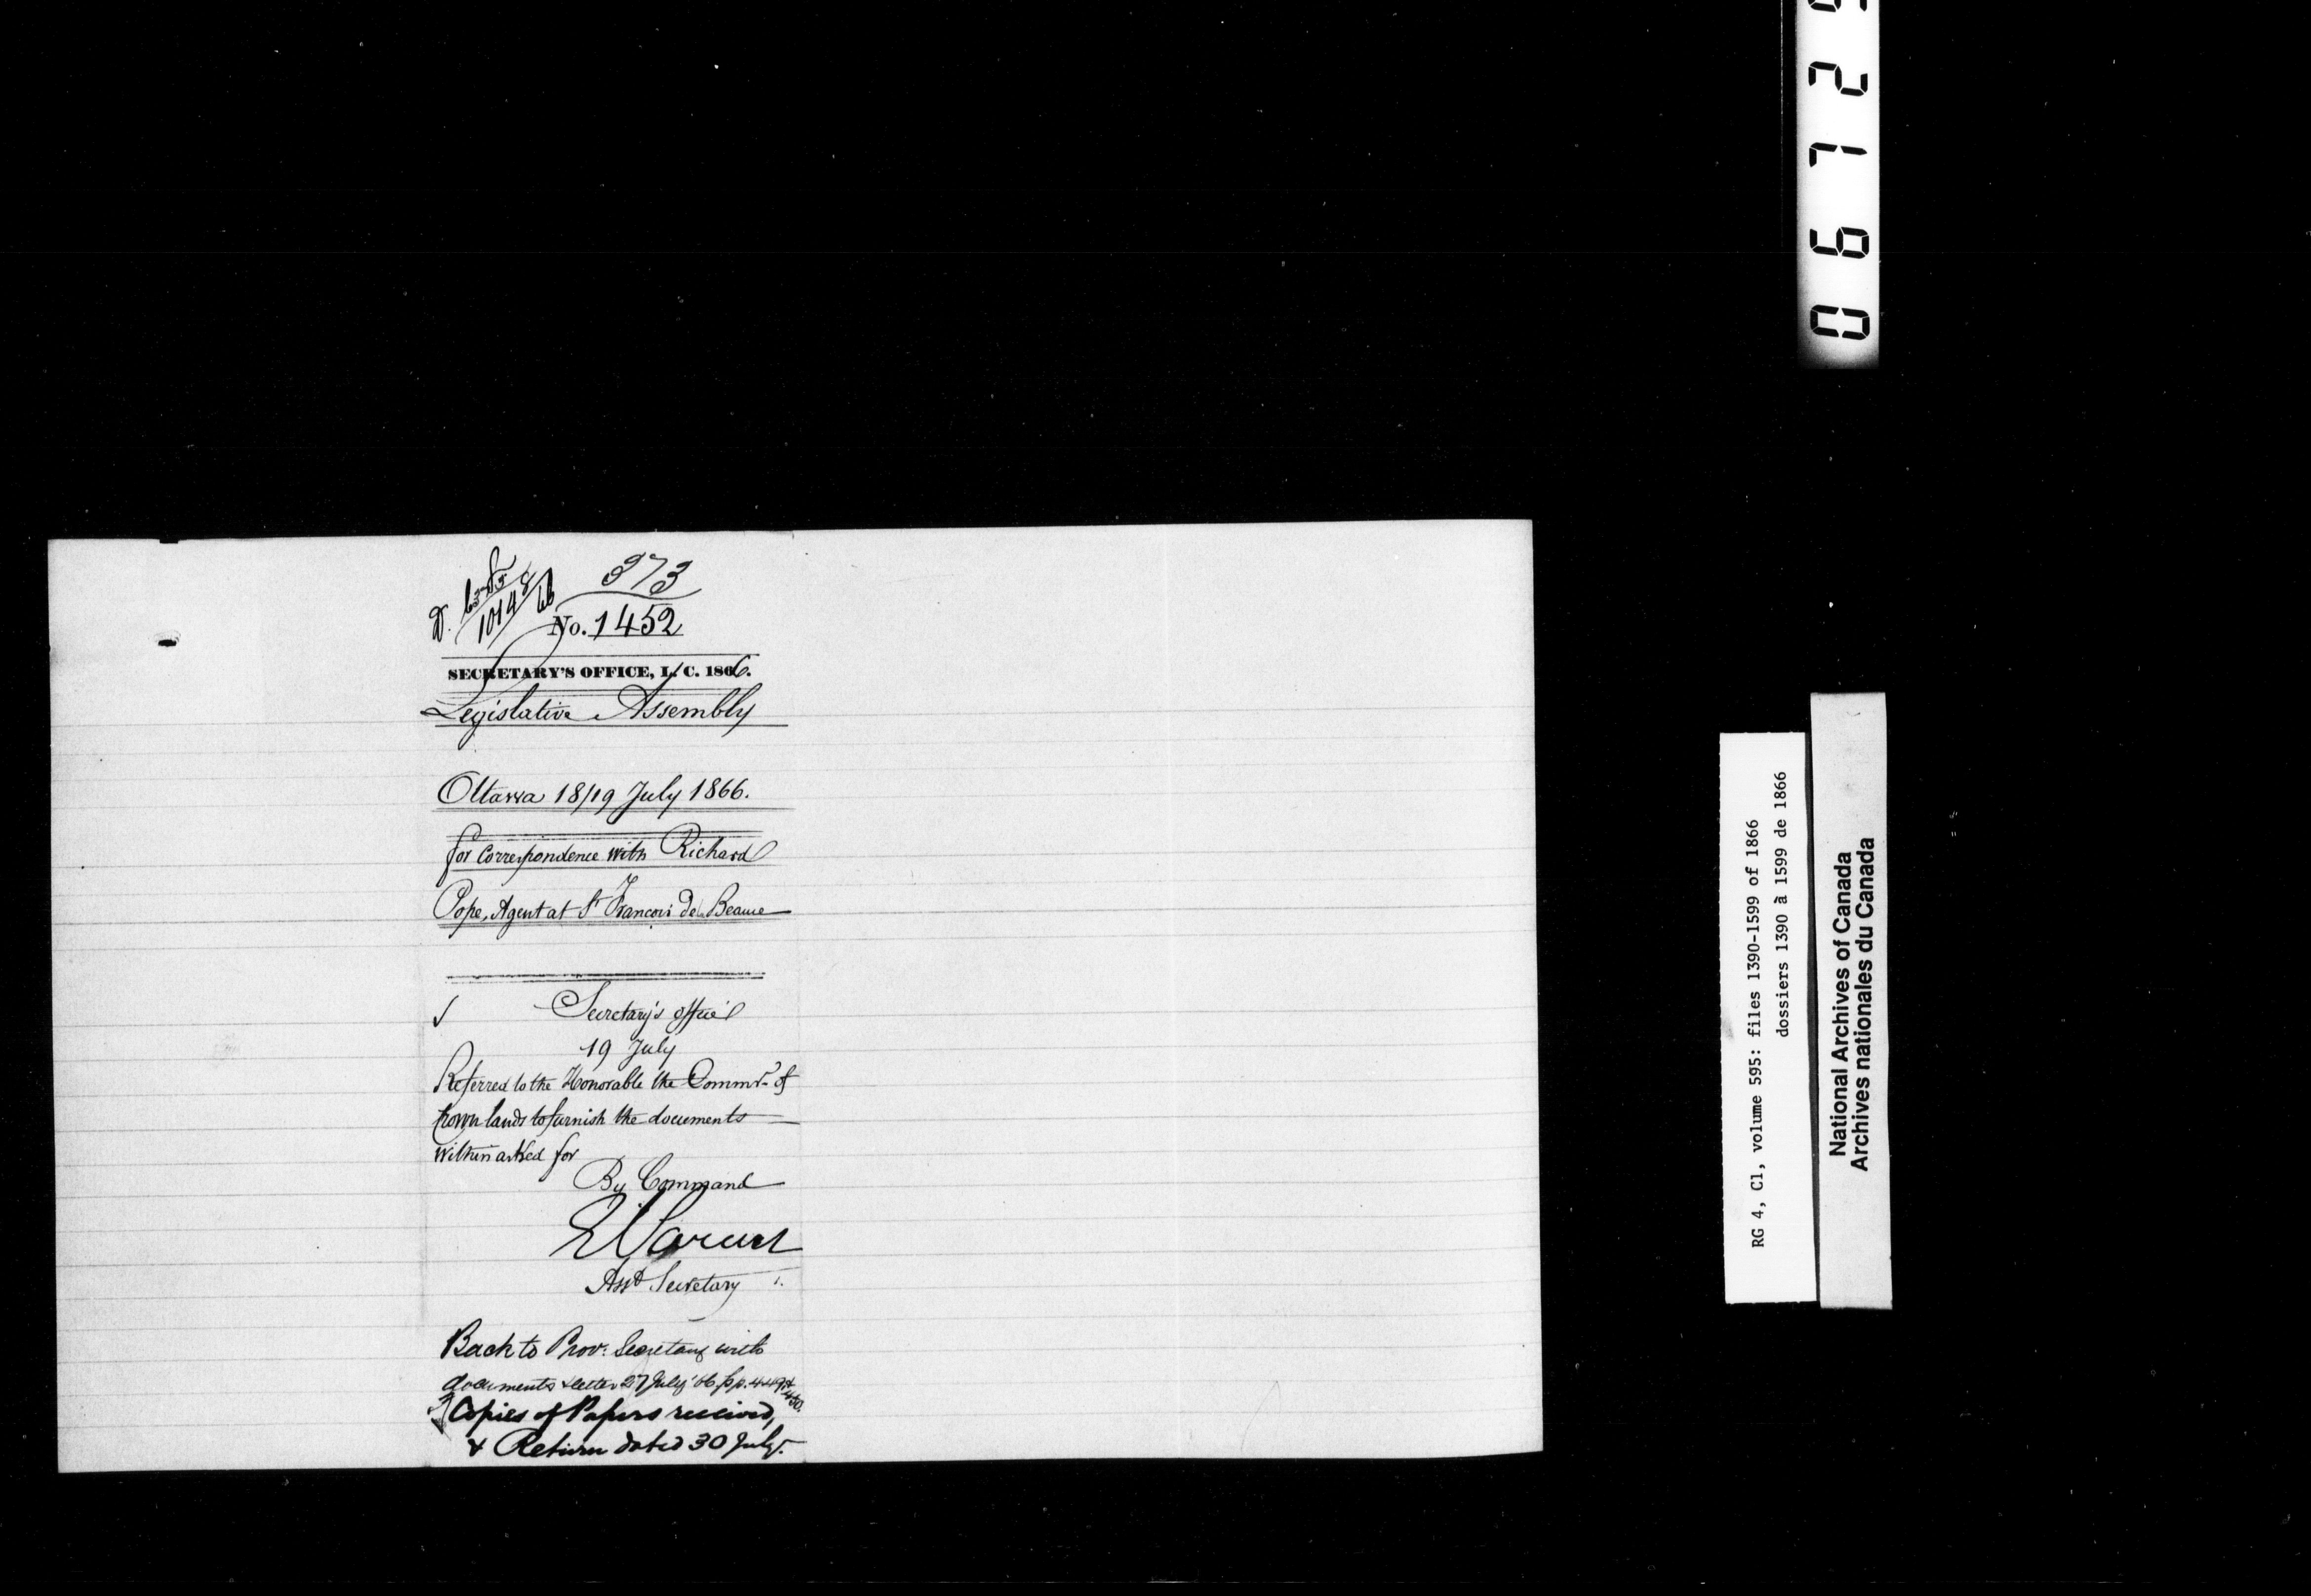 373
No. 1452
SECRETARY'S OFFICE, L. C. 1866.
Legislative Assembly
Ottawa 18/19 July 1866.
for Correspondence with Richard
Pope, Agent at St Francois de Beauce
Secretary's office
19 July
Referred to the Honorable the Commr. of
Crown lands to furnish the documents
within asked for
By Command
Asst Secretary
Back to Prov. Secretary with
documents & letter 27 July '66 pp. 449 & 450.
Copies of Papers received,
& Return dated 30 July.
RG 4, C1, volume 595: files 1390-1599 of 1866
dossiers 1390 à 1599 de 1866
National Archives of Canada
Archives nationales du Canada